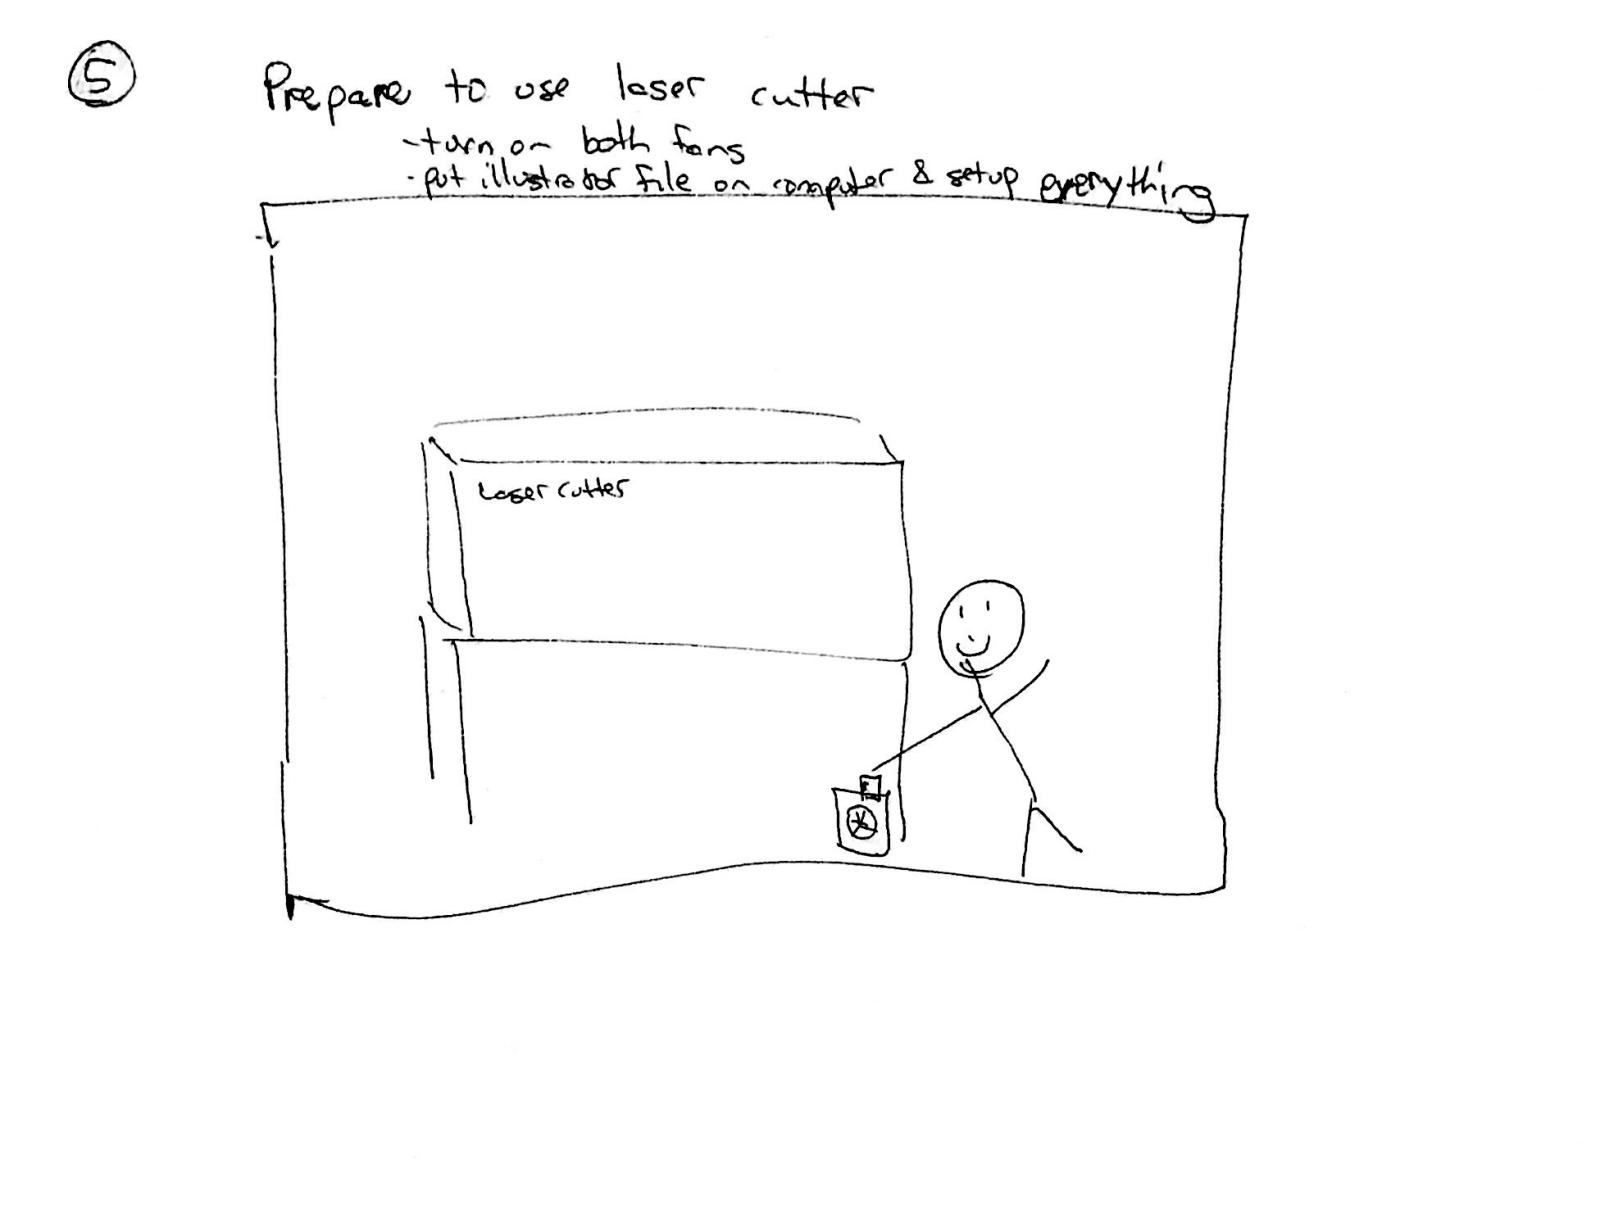 5
Prepare to use laser cutter
-turn on both fans
-put illustrator file on computer & setup everything
Laser cutter